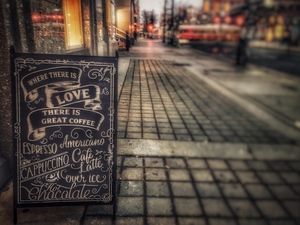 WHERE THERE IS
LOVE
THERE IS
GREAT COFFEE
ESPRESSO Americano
CAPPUCCINO Café
Latte
over ice
Hot
Chocolate